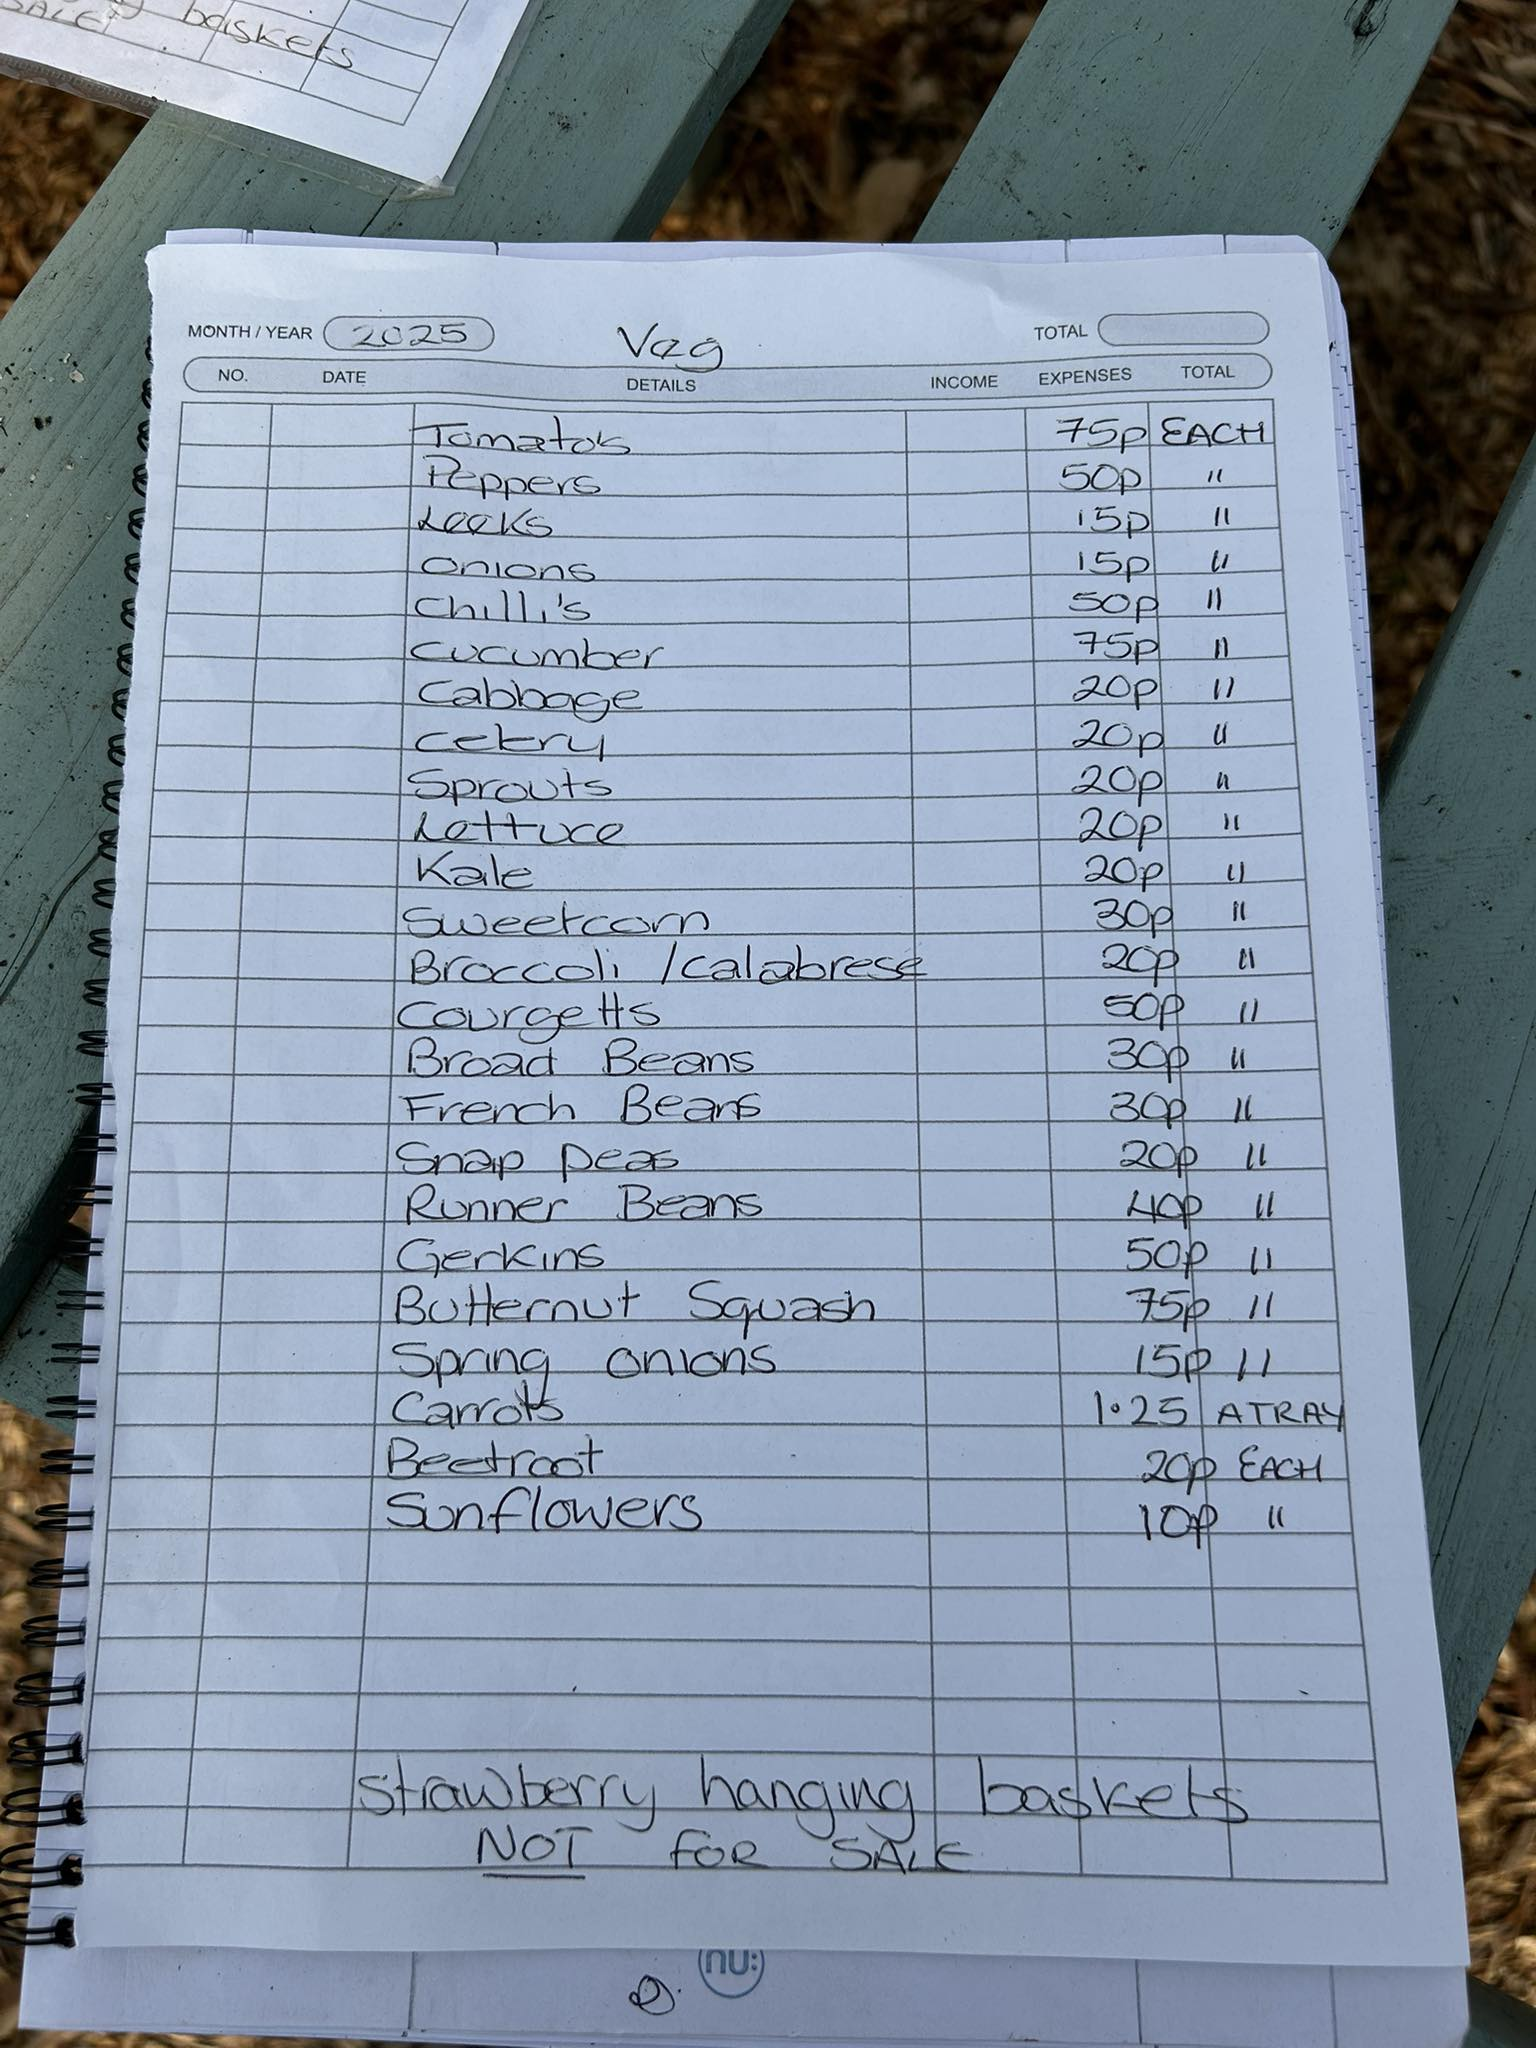 SALE baskets
MONTH / YEAR 2025 Veg TOTAL
NO. DATE DETAILS INCOME EXPENSES TOTAL
Tomato's 75p EACH
Peppers 50p "
Leeks 15p "
onions 15p "
Chilli's 50p "
cucumber 75p "
Cabbage 20p "
celery 20p "
Sprouts 20p "
Lettuce 20p "
Kale 20p "
Sweetcorn 30p "
Broccoli /calabrese 20p "
Courgetts 50p "
Broad Beans 30p "
French Beans 30p "
Snap peas 20p "
Runner Beans 40p "
Gerkins 50p "
Butternut Squash 75p "
Spring onions 15p "
Carrots 1.25 A TRAY
Beetroot 20p EACH
Sunflowers 10p "
strawberry hanging baskets
NOT FOR SALE
nu: